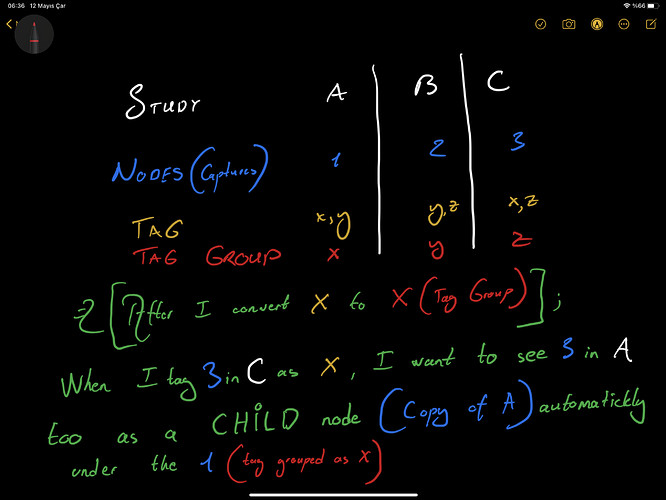 06:36 12 Mayıs Çar %66
STUDY A B C
NODES (Captures) 1 2 3
TAG x,y y,z x,z
TAG GROUP x y z
[After I convert X to X (Tag Group)];
When I tag 3 in C as X, I want to see 3 in A
too as a CHILD node (Copy of A) automatickly
under the 1 (tag grouped as X)